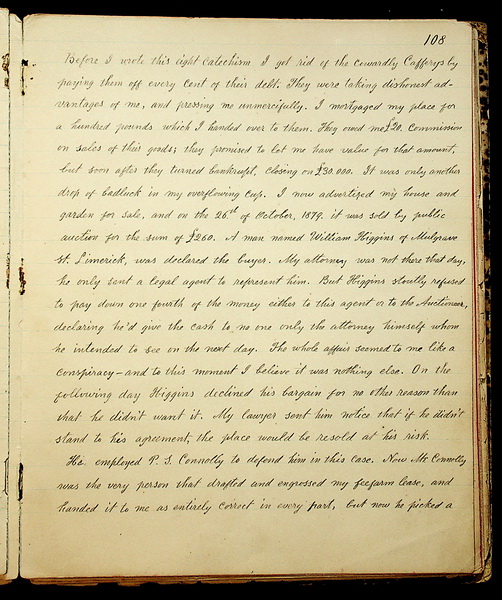 108
Before I wrote this eight Catechism I got rid of the cowardly Cafferys by
paying them off every cent of their debt. They were taking dishonest ad-
vantages of me, and pressing me unmercifully. I mortgaged my place for
a hundred pounds which I handed over to them. They owed me £20. Commission
on sales of their goods; they promised to let me have value for that amount,
but soon after they turned bankrupt, closing on £30.000. It was only another
drop of badluck in my overflowing cup. I now advertized my house and
garden for sale, and on the 26th of October, 1879, it was sold by public
auction for the sum of £260. A man named William Higgins of Mulgrave
St. Limerick, was declared the buyer. My attorney was not there that day,
he only sent a legal agent to represent him. But Higgins stoutly refused
to pay down one fourth of the money either to this agent or to the Auctioneer,
declaring he'd give the cash to no one only the attorney himself whom
he intended to see on the next day. The whole affair seemed to me like a
conspiracy — and to this moment I believe it was nothing else. On the
following day Higgins declined his bargain for no other reason than
that he didn't want it. My lawyer sent him notice that if he didn't
stand to his agreement, the place would be resold at his risk.
He employed P. S. Connolly to defend him in this case. Now Mr. Connolly
was the very person that drafted and engrossed my feefarm lease, and
handed it to me as entirely correct in every part, but now he picked a